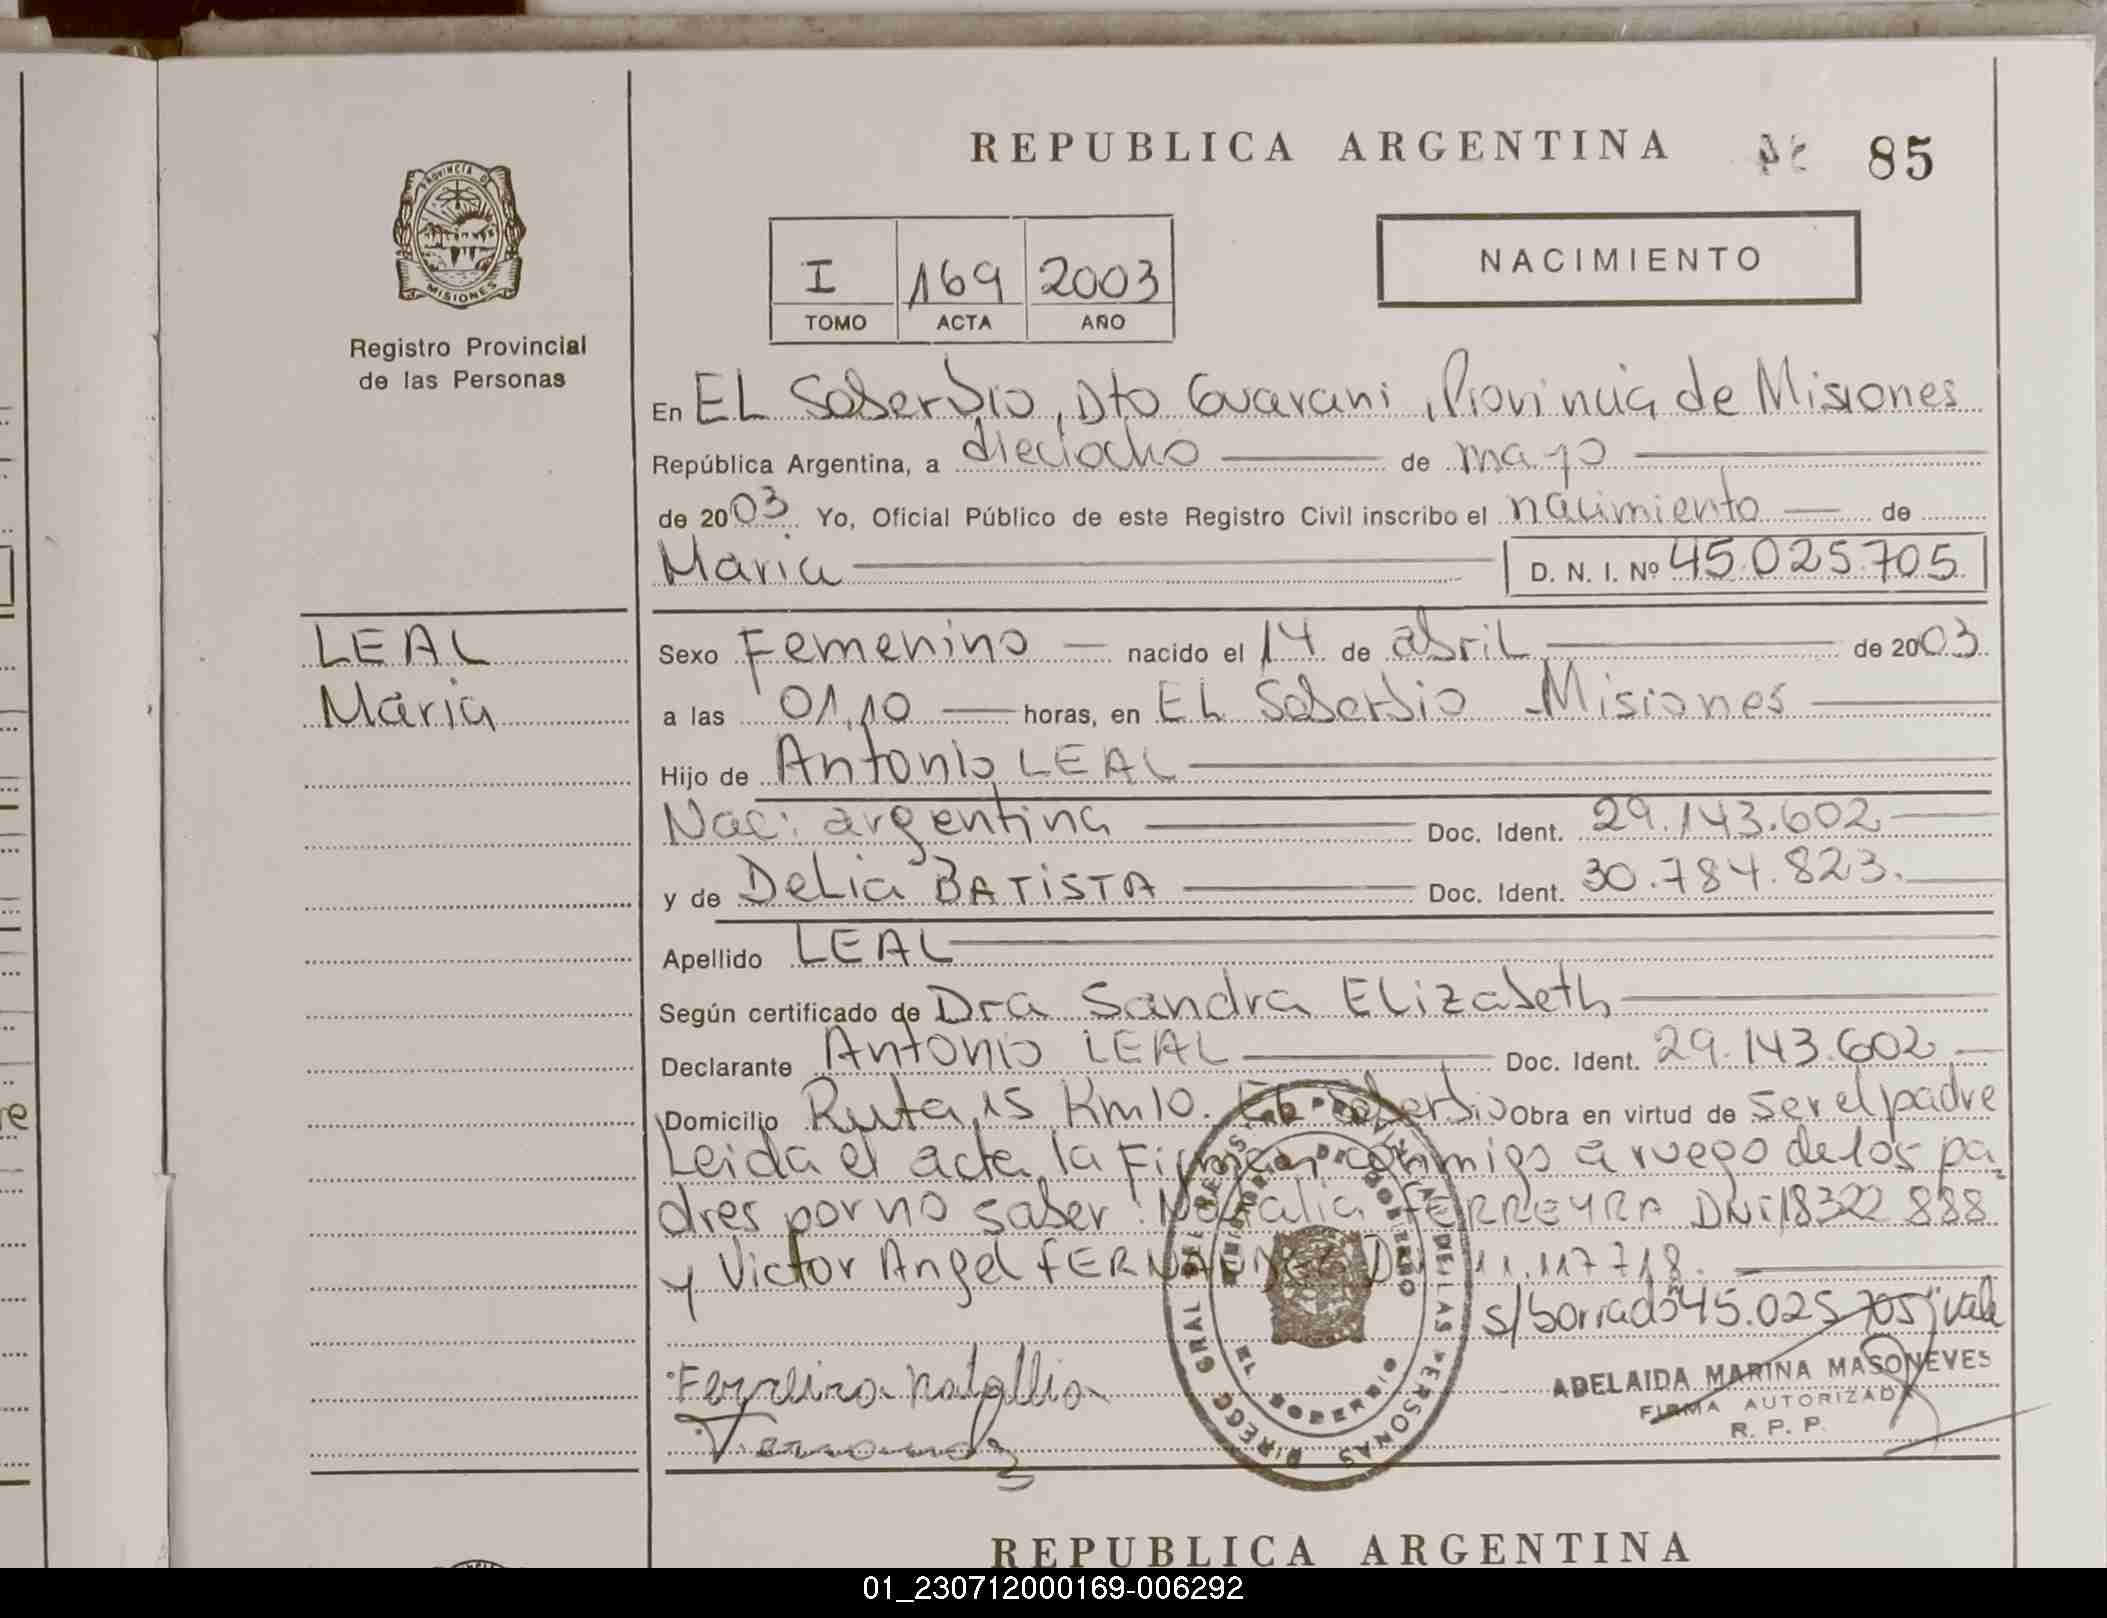 REPUBLICA ARGENTINA
85
PROVINCIA DE
MISIONES
Registro Provincial
de las Personas
I 169 2003
TOMO ACTA AÑO
NACIMIENTO
En EL Soberbio, Dto Guarani, Provincia de Misiones
República Argentina, a dieciocho de mayo
de 2003 Yo, Oficial Público de este Registro Civil inscribo el nacimiento de
Maria D. N. I. Nº 45.025.705
LEAL
Maria
Sexo Femenino nacido el 14 de abril de 2003
a las 01,10 horas, en EL Soberbio - Misiones
Hijo de Antonio LEAL
Nac: argentina Doc. Ident. 29.143.602
y de Delia BATISTA Doc. Ident. 30.784.823.
Apellido LEAL
Según certificado de Dra Sandra Elizabeth
Declarante Antonio LEAL Doc. Ident. 29.143.602
Domicilio Ruta 15 Km 10. El Soberbio Obra en virtud de ser el padre
Leida el acta la Firman conmigo a ruego de los pa-
dres por no saber: Natalia FERREYRA DNI 18322 888
y Victor Angel FERNANDEZ DNI 11.117718.
s/borrado "45.025 705" vale
Ferreira Natallia
ADELAIDA MARINA MASONEVES
FIRMA AUTORIZADA
R. P. P.
DIRECC GRAL DEL REGISTRO PROVINCIAL DE LAS PERSONAS
MINISTERIO DE GOBIERNO
EL SOBERBIO
REPUBLICA ARGENTINA
re
01_230712000169-006292